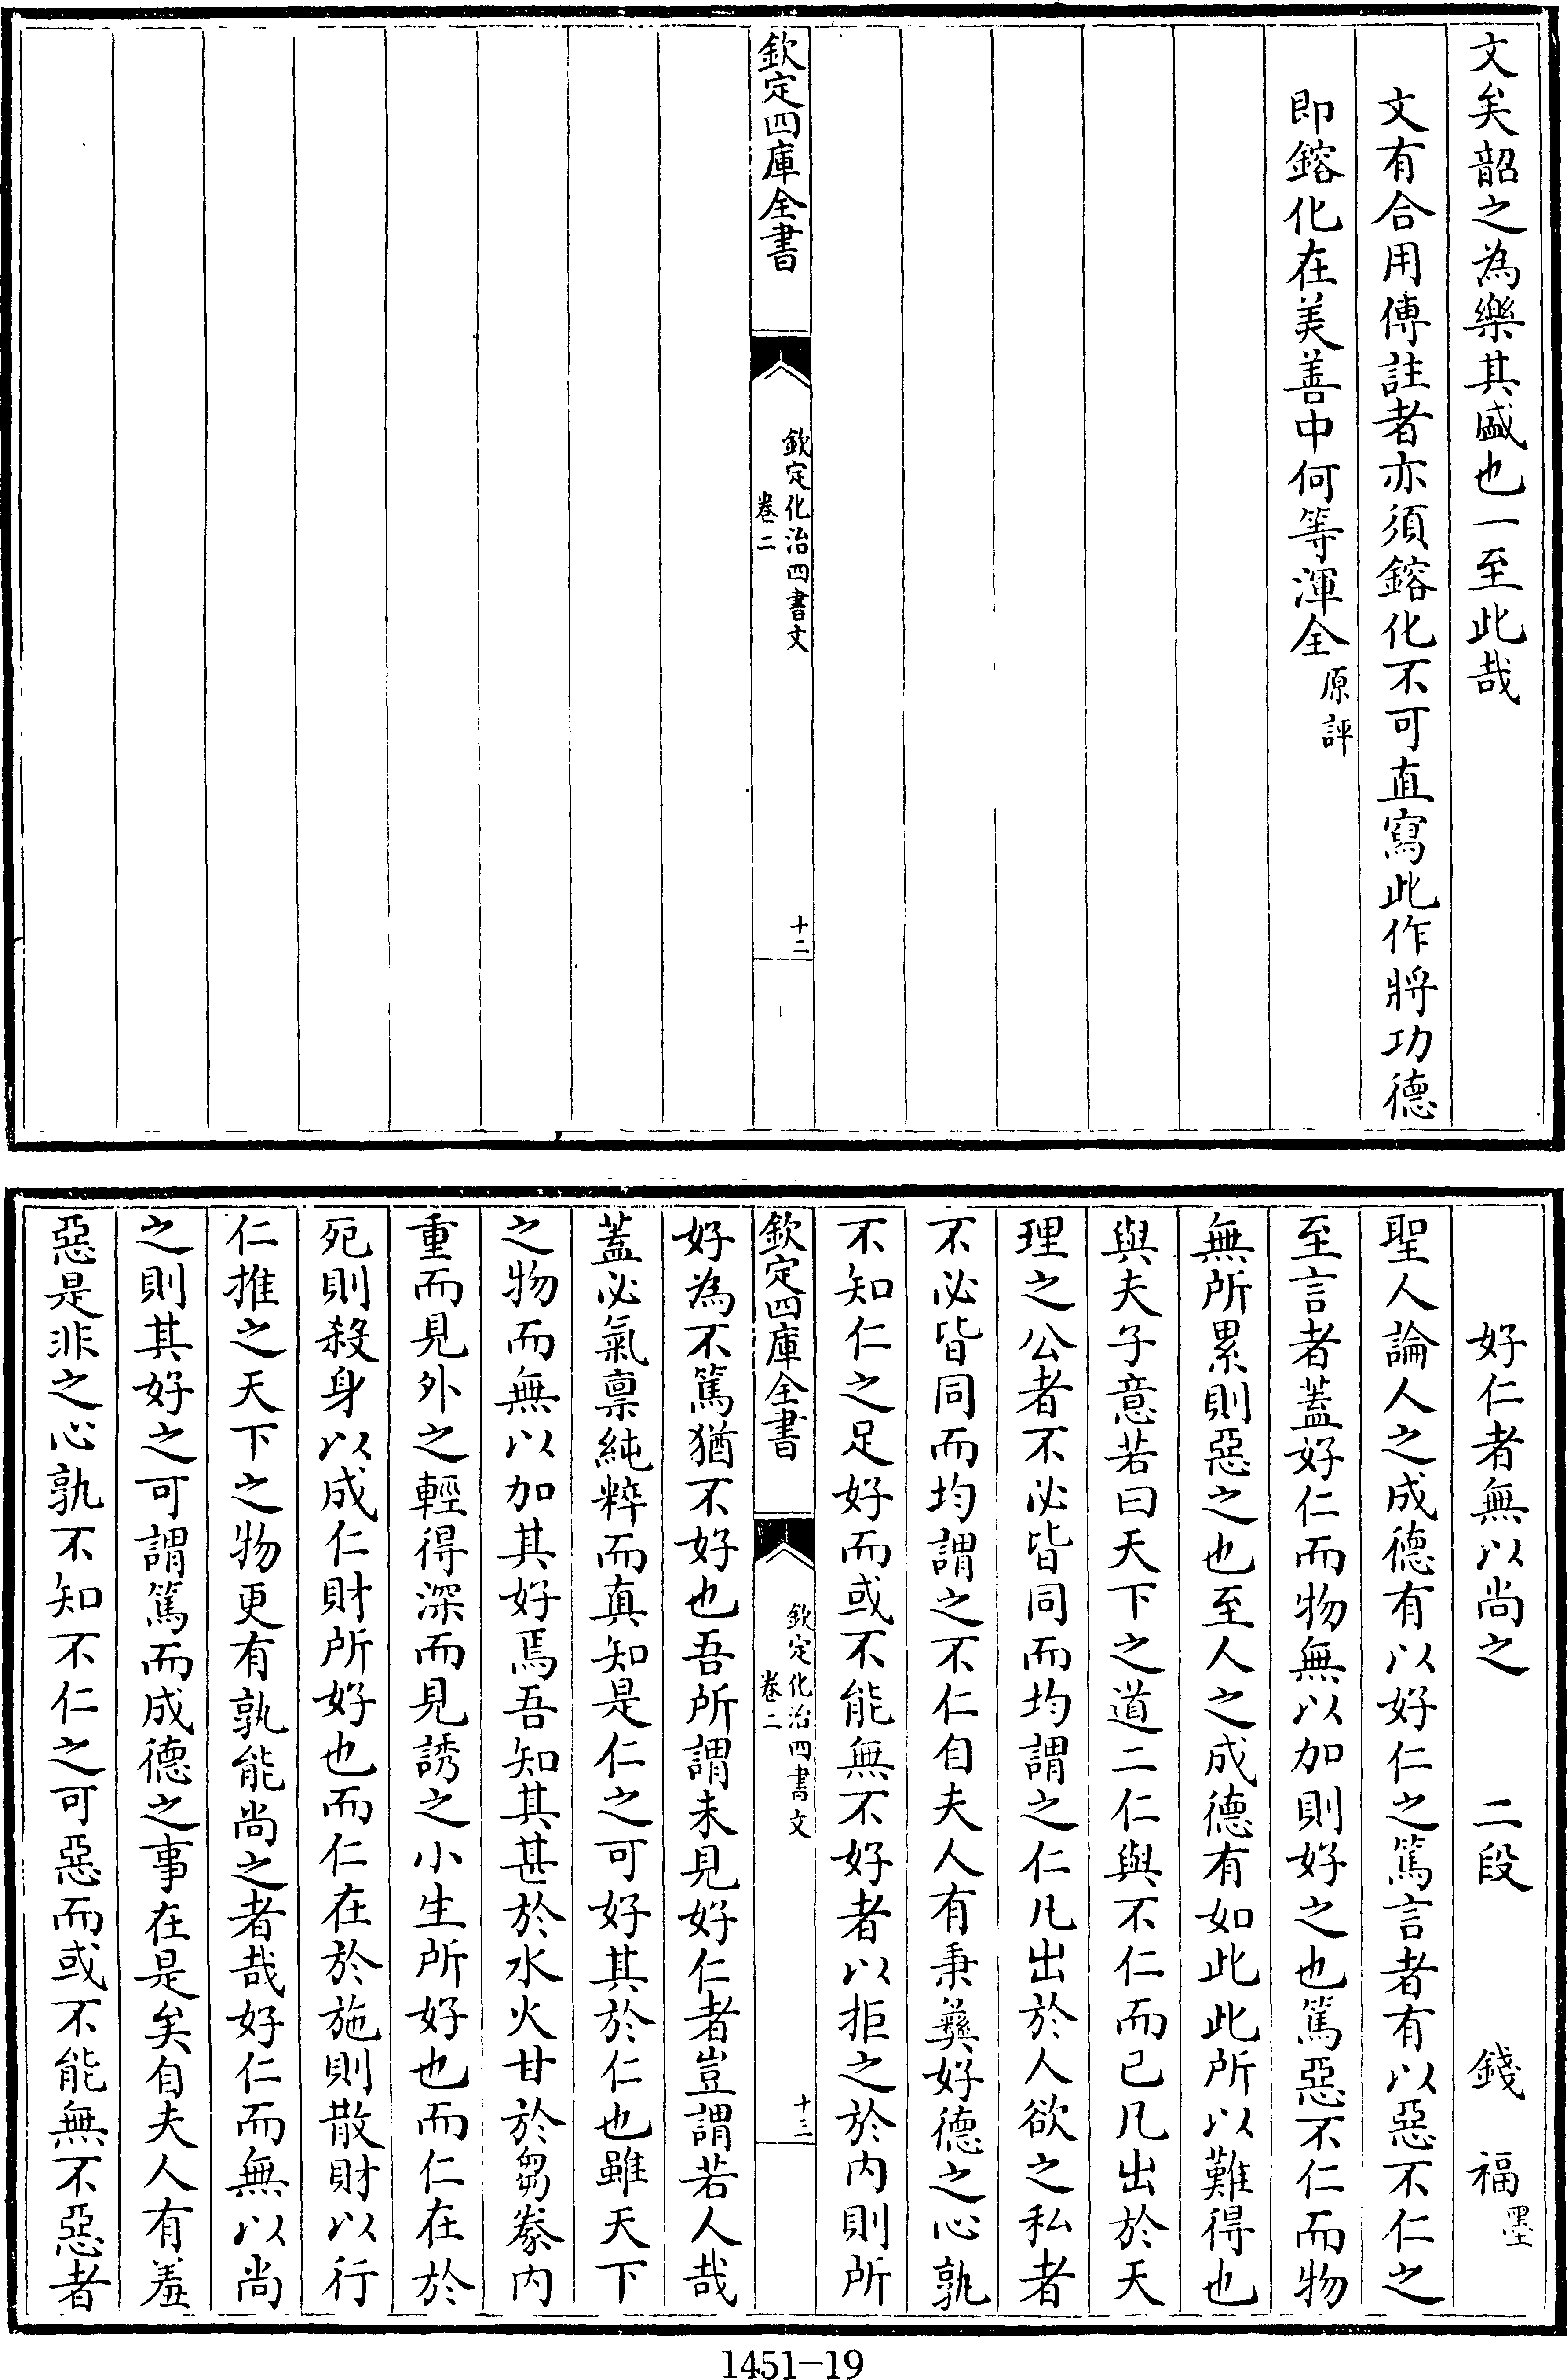 文矣韶之為樂其盛也一至此哉
文有合用傳註者亦須鎔化不可直寫此作將功德
即鎔化在美善中何等渾全原評
欽定四庫全書
欽定化治四書文
卷二
十二
好仁者無以尚之 二段 錢福墨
聖人論人之成德有以好仁之篤言者有以惡不仁之
至言者蓋好仁而物無以加則好之也篤惡不仁而物
無所累則惡之也至人之成德有如此此所以難得也
與夫子意若曰天下之道二仁與不仁而已凡出於天
理之公者不必皆同而均謂之仁凡出於人欲之私者
不必皆同而均謂之不仁自夫人有秉彝好德之心孰
不知仁之足好而或不能無不好者以拒之於内則所
欽定四庫全書
欽定化治四書文
卷二
十三
好為不篤猶不好也吾所謂未見好仁者豈謂若人哉
蓋必氣稟純粹而真知是仁之可好其於仁也雖天下
之物而無以加其好焉吾知其甚於水火甘於芻豢内
重而見外之輕得深而見誘之小生所好也而仁在於
死則殺身以成仁財所好也而仁在於施則散財以行
仁推之天下之物更有孰能尚之者哉好仁而無以尚
之則其好之可謂篤而成德之事在是矣自夫人有羞
惡是非之心孰不知不仁之可惡而或不能無不惡者
1451-19